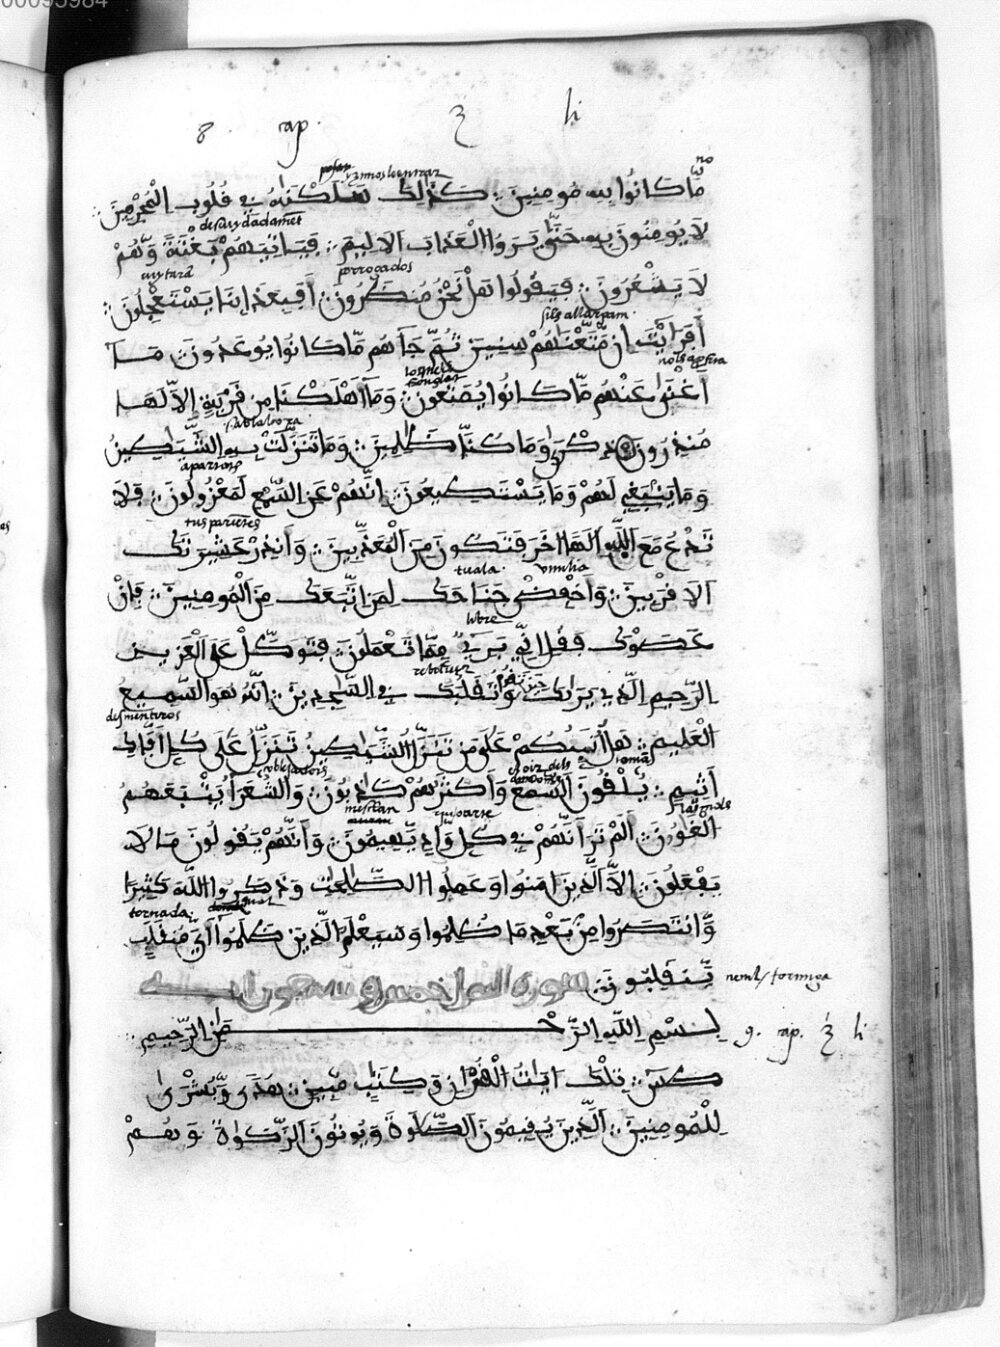 00095984
8. rap. li
no
مَّا كَانُوا بِهِ مُومِنِينَ كَذَٰلِكَ سَلَكْنَٰهُ فِي قُلُوبِ الْمُجْرِمِينَ
desaydadamēt
لَا يُومِنُونَ بِهِ حَتَّىٰ يَرَوُا الْعَذَابَ الَالِيمَ فَيَاتِيَهُمْ بَغْتَةً وَّهُمْ
porrogados
لَا يَشْعُرُونَ فَيَقُولُوا هَلْ نَحْنُ مُنظَرُونَ أَفَبِعَذَابِنَا يَسْتَعْجِلُونَ
أَفَرَايْتَ إِن مَّتَّعْنَٰهُمْ سِنِينَ ثُمَّ جَآءَهُم مَّا كَانُوا يُوعَدُونَ مَآ
أَغْنَىٰ عَنْهُم مَّا كَانُوا يُمَتَّعُونَ وَمَآ أَهْلَكْنَا مِن قَرْيَةٍ اِلَّا لَهَا
مُنذِرُونَ ذِكْرَىٰ وَمَا كُنَّا ظَٰلِمِينَ وَمَا تَنَزَّلَتْ بِهِ الشَّيَٰطِينُ
وَمَا يَنۢبَغِي لَهُمْ وَمَا يَسْتَطِيعُونَ إِنَّهُمْ عَنِ السَّمْعِ لَمَعْزُولُونَ فَلَا
tus pariētes
تَدْعُ مَعَ اللَّهِ إِلَٰهًا اخَرَ فَتَكُونَ مِنَ الْمُعَذَّبِينَ وَأَنذِرْ عَشِيرَتَكَ
tuala. vmilia
الَاقْرَبِينَ وَاخْفِضْ جَنَاحَكَ لِمَنِ اتَّبَعَكَ مِنَ الْمُومِنِينَ فَإِنْ
libre
عَصَوْكَ فَقُلِ انِّي بَرِيءٌ مِّمَّا تَعْمَلُونَ فَتَوَكَّلْ عَلَى الْعَزِيزِ
الرَّحِيمِ الَّذِي يَرَىٰكَ حِينَ تَقُومُ وَتَقَلُّبَكَ فِي السَّٰجِدِينَ إِنَّهُ هُوَ السَّمِيعُ
desmentiros
الْعَلِيمُ هَلُ انَبِّئُكُمْ عَلَىٰ مَن تَنَزَّلُ الشَّيَٰطِينُ تَنَزَّلُ عَلَىٰ كُلِّ أَفَّاكٍ
أَثِيمٍ يُلْقُونَ السَّمْعَ وَأَكْثَرُهُمْ كَٰذِبُونَ وَالشُّعَرَآءُ يَتْبَعُهُمُ
الْغَاوُونَ أَلَمْ تَرَ أَنَّهُمْ فِي كُلِّ وَادٍ يَهِيمُونَ وَأَنَّهُمْ يَقُولُونَ مَا لَا
يَفْعَلُونَ إِلَّا الَّذِينَ امَنُوا وَعَمِلُوا الصَّٰلِحَٰتِ وَذَكَرُوا اللَّهَ كَثِيرًا
tornada
وَّانتَصَرُوا مِنۢ بَعْدِ مَا ظُلِمُوا وَسَيَعْلَمُ الَّذِينَ ظَلَمُوا أَيَّ مُنقَلَبٍ
يَّنقَلِبُونَ سورة النمل خمس وتسعون اية
neml / formiga
بِسْمِ اللَّهِ الرَّحْمَٰنِ الرَّحِيمِ
9. rap. li
طسٓ تِلْكَ ايَٰتُ الْقُرْانِ وَكِتَٰبٍ مُّبِينٍ هُدًى وَّبُشْرَىٰ
لِلْمُومِنِينَ الَّذِينَ يُقِيمُونَ الصَّلَوٰةَ وَيُوتُونَ الزَّكَوٰةَ وَهُمْ